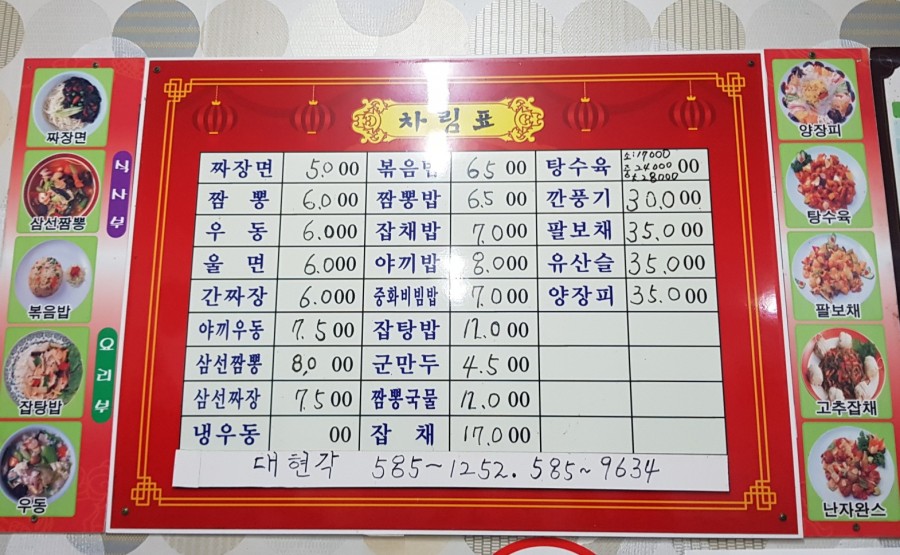 차림표
짜장면 5.000 볶음밥 65 00 탕수육 소:17000 중24000 대28000 00
짬 뽕 6.000 짬뽕밥 6.5 00 깐풍기 30.000
우 동 6.000 잡채밥 7.000 팔보채 35.000
울 면 6.000 야끼밥 8.000 유산슬 35.000
간짜장 6.000 중화비빔밥 7.000 양장피 35.000
야끼우동 7.500 잡탕밥 12.000
삼선짬뽕 8,0 00 군만두 4.500
삼선짜장 7.500 짬뽕국물 12.000
냉우동 00 잡 채 17.000
대현각 585~1252. 585~9634
짜장면
삼선짬뽕
볶음밥
잡탕밥
우동
식사부
요리부
양장피
탕수육
팔보채
고추잡채
난자완스